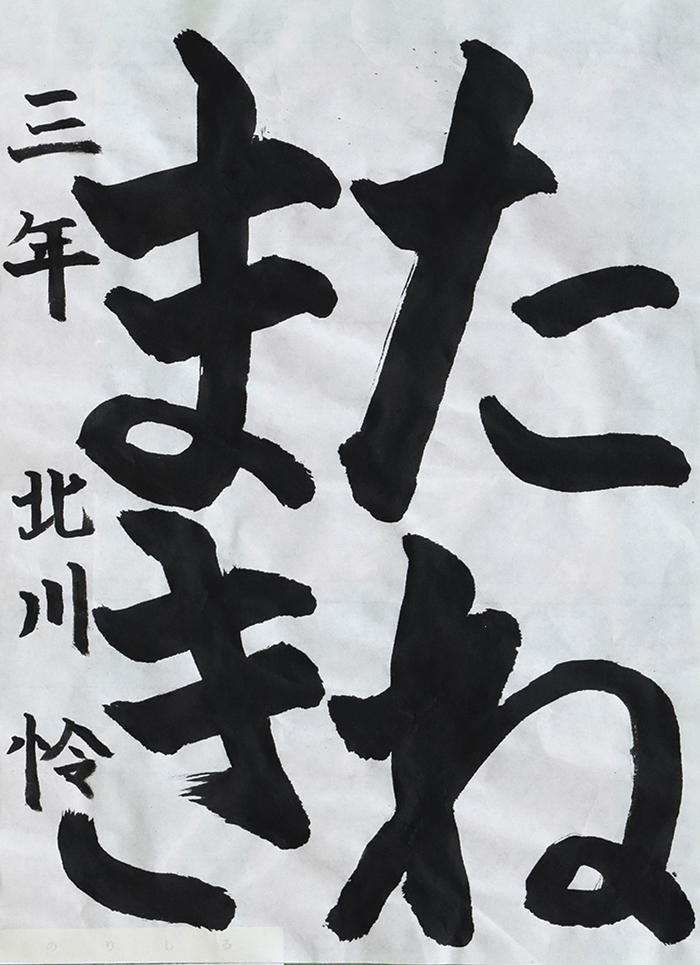 たね
まき
三年 北川 怜
のりしろ